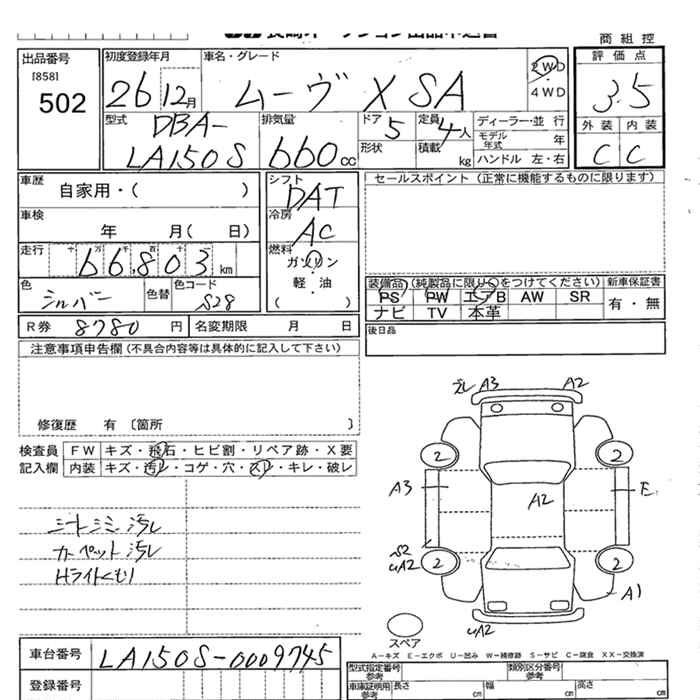 商 組 控
出品番号
[858]
502
初度登録年月
26年12月
車名・グレード
ムーヴ X SA
2WD
4WD
評 価 点
3.5
外 装 内 装
C C
型式
DBA-
LA150S
排気量
660 cc
ドア
5
定員
4人
形状
積載
kg
ディーラー・並 行
モデル年式
年
ハンドル 左・右
車歴
自家用・( )
車検
年 月( 日)
走行
十 万 千 百 十 一
66,803 km
色
シルバー
色替
色コード
S28
R券
8780 円
名変期限 月 日
シフト
DAT
冷房
AC
燃料
ガソリン
軽・油
( )
セールスポイント (正常に機能するものに限ります)
装備品 (純製品に限り○をつけてください)
新車保証書
有・無
PS PW エアB AW SR
ナビ TV 本革
後日品
注意事項申告欄 (不具合内容等は具体的に記入して下さい)
修復歴 有 〔箇所 〕
検査員
記入欄
FW キズ・飛石・ヒビ割・リペア跡・X要
内装 キズ・汚レ・コゲ・穴・スレ・キレ・破レ
シートシミ 汚レ
カーペット汚レ
Hライトくもり
A3 A2
2 2
A3 A2 E
S2
UA2
2 2
A1
UA2
スペア
A-キズ E-エクボ U-凹み W-補修跡 S-サビ C-腐食 XX-交換済
車台番号
LA150S-0009745
登録番号
型式指定番号
参考
類別区分番号
参考
車庫証明用
参考
長さ cm
幅 cm
高さ cm